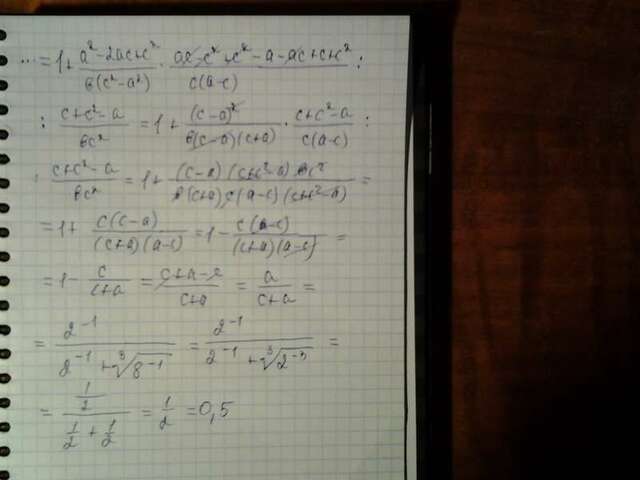 ... = 1 + (a² - 2ac + c²)/(b(c² - a²)) · (ac - c² + c² - a - ac + c + c²)/(c(a - c)) :
: (c + c² - a)/(bc²) = 1 + (c - a)²/(b(c - a)(c + a)) · (c + c² - a)/(c(a - c)) :
: (c + c² - a)/(bc²) = 1 + ((c - a)(c + c² - a) bc²)/(b(c + a) c(a - c)(c + c² - a)) =
= 1 + (c(c - a))/((c + a)(a - c)) = 1 - (c(a - c))/((c + a)(a - c)) =
= 1 - c/(c + a) = (c + a - c)/(c + a) = a/(c + a) =
= 2⁻¹/(2⁻¹ + ³√8⁻¹) = 2⁻¹/(2⁻¹ + ³√2⁻³) =
= (1/2)/(1/2 + 1/2) = 1/2 = 0,5